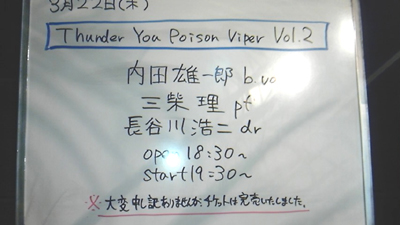 3月22日(木)
Thunder You Poison Viper Vol.2
内田雄一郎 b.vo
三柴理 pf
長谷川浩二 dr
open 18:30~
start 19:30~
※大変申し訳ありませんがチケットは完売いたしました。